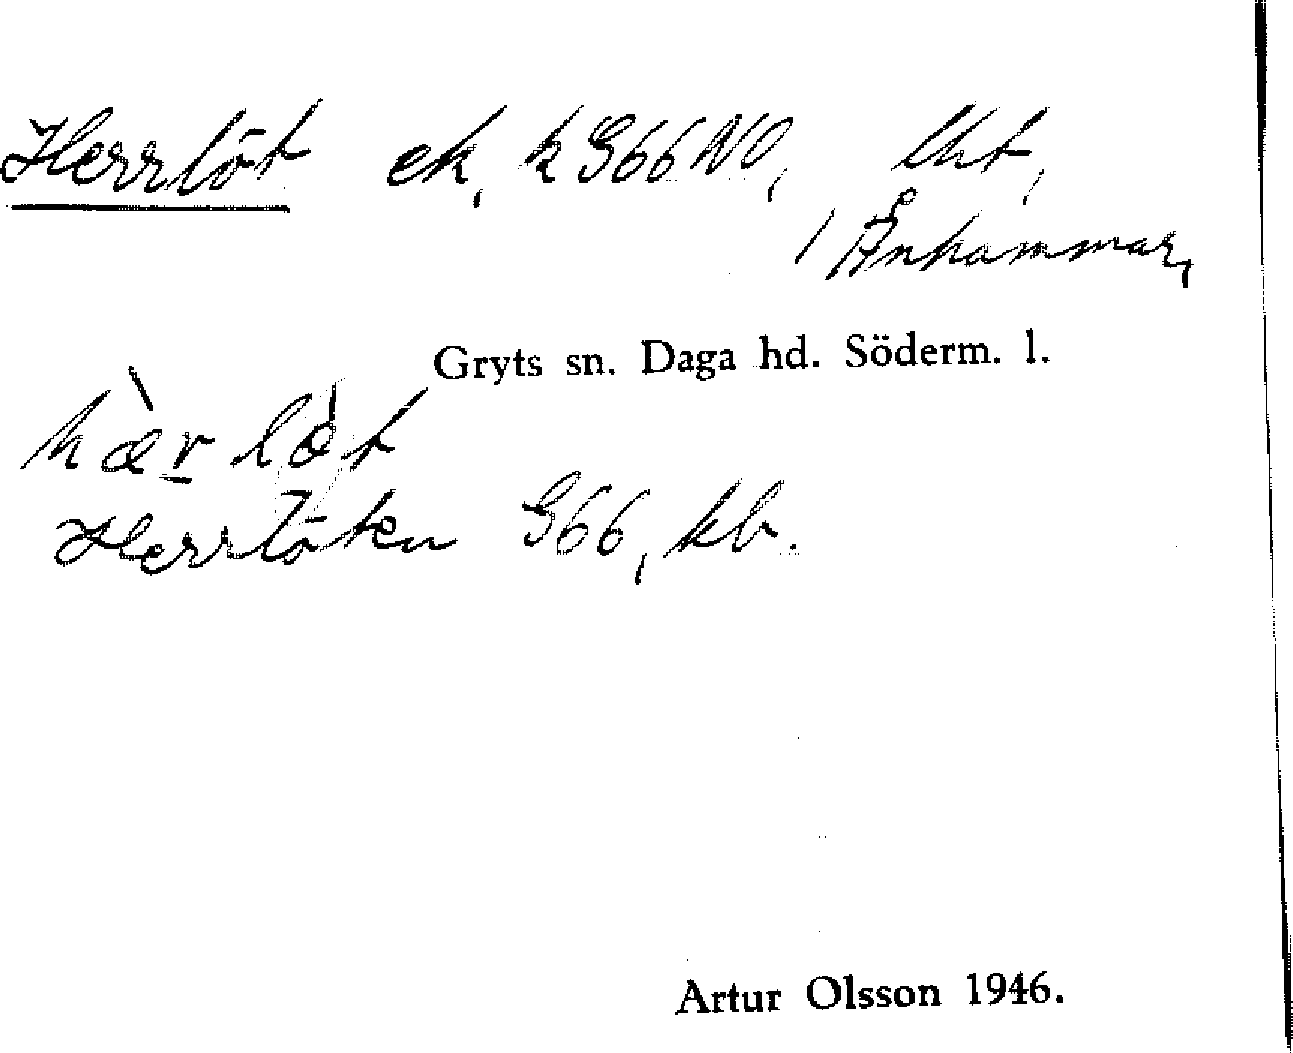 Herrlöt ek, k G66 NO, lht,
/ Ånhammar,
Gryts sn. Daga hd. Söderm. l.
hær løt
Herrlöten G66, kb.
Artur Olsson 1946.